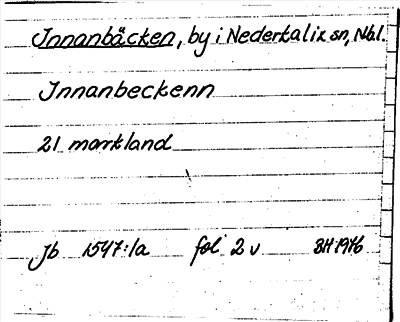 Innanbäcken, by i Nederkalix sn, Nbl.
Innanbeckenn
21 markland
Jb 1547:1a fol 2 v BH 1976